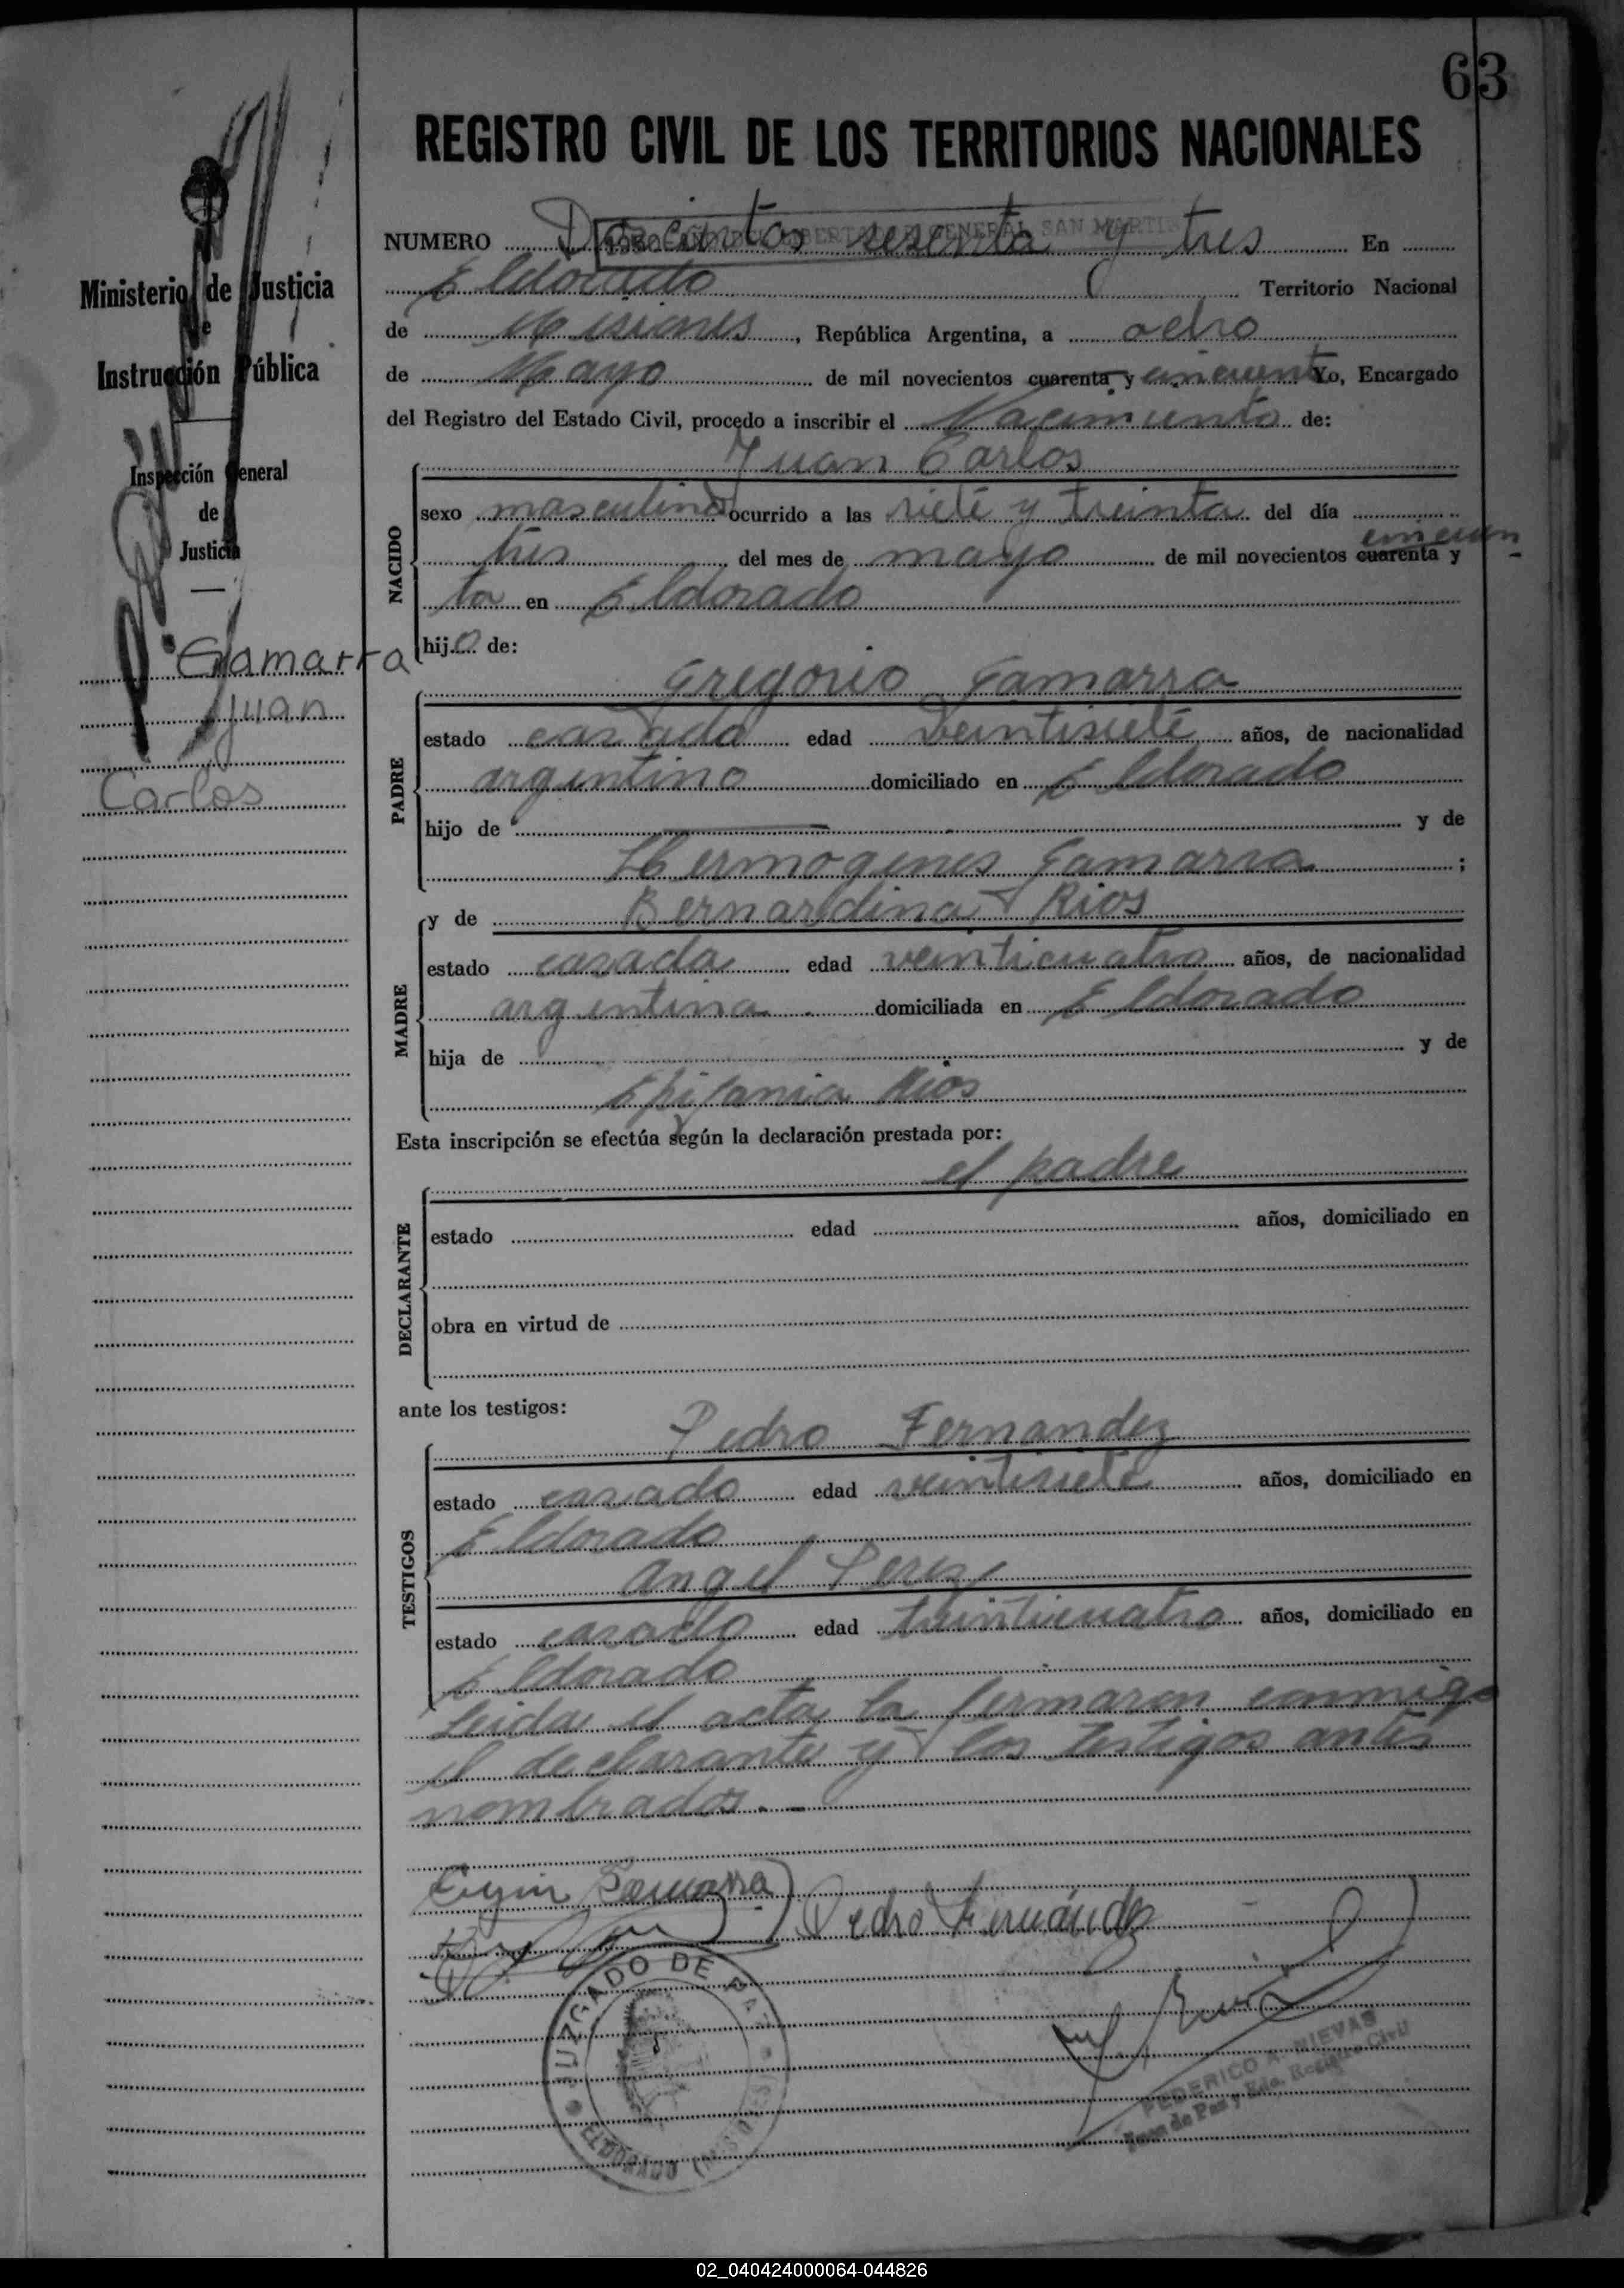 63
REGISTRO CIVIL DE LOS TERRITORIOS NACIONALES
NUMERO Doscientos sesenta y tres En
GENERAL SAN MARTIN
Eldorado Territorio Nacional
de Misiones, República Argentina, a ocho
de Mayo de mil novecientos cuarenta y cincuenta Yo, Encargado
del Registro del Estado Civil, procedo a inscribir el Nacimiento de:
Juan Carlos
NACIDO
sexo masculino ocurrido a las siete y treinta del día
cincuen
tres del mes de mayo de mil novecientos cuarenta y -
ta en Eldorado
hijo de:
Gregorio Gamarra
PADRE
estado casado edad veintisiete años, de nacionalidad
argentino domiciliado en Eldorado
hijo de y de
Hermogenes Gamarra ;
y de Bernardina Rios
MADRE
estado casada edad veinticuatro años, de nacionalidad
argentina domiciliada en Eldorado
hija de y de
Epifania Rios
Esta inscripción se efectúa según la declaración prestada por:
el padre
DECLARANTE
estado edad años, domiciliado en
obra en virtud de
ante los testigos:
Pedro Fernandez
TESTIGOS
estado casado edad veintisiete años, domiciliado en
Eldorado
Angel Perez
estado casado edad treinticuatro años, domiciliado en
Eldorado
Leida el acta la firmaron conmigo
el declarante y los testigos antes
nombrados.-
Gamarra
Pedro Fernández
JUZGADO DE PAZ
ELDORADO
FEDERICO A. NIEVAS
Juez de Paz y Edo. Registro Civil
Ministerio de Justicia
e
Instrucción Pública
Inspección General
de
Justicia
Gamarra
Juan
Carlos
02_040424000064-044826